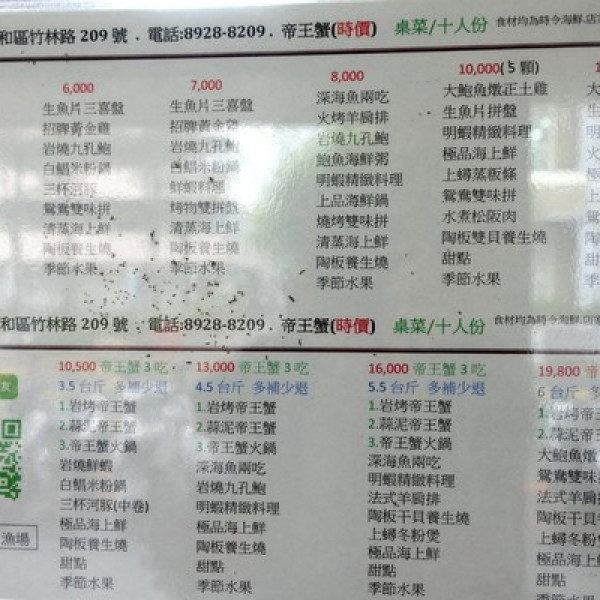 和區竹林路 209 號 . 電話:8928-8209 . 帝王蟹(時價) 桌菜/十人份 食材均為時令海鮮.店家
6,000
生魚片三喜盤
招牌黃金雞
岩燒九孔鮑
白鯧米粉鍋
三杯河豚
鴛鴦雙味拼
清蒸海上鮮
陶板養生燒
季節水果
7,000
生魚片三喜盤
招牌黃金雞
岩燒九孔鮑
白鯧米粉鍋
鮮蝦料理
烤物雙拼
清蒸海上鮮
陶板養生燒
季節水果
8,000
深海魚兩吃
火烤羊肩排
岩燒九孔鮑
鮑魚海鮮粥
明蝦精緻料理
上品海鮮鍋
燒烤雙味拼
清蒸海上鮮
陶板養生燒
季節水果
10,000(5 顆)
大鮑魚燉正土雞
生魚片拼盤
明蝦精緻料理
極品海上鮮
上蟳蒸粄條
鴛鴦雙味拼
水煮松阪肉
陶板雙貝養生燒
甜點
季節水果
和區竹林路 209 號 . 電話:8928-8209 . 帝王蟹(時價) 桌菜/十人份 食材均為時令海鮮.店家
友
漁場
10,500 帝王蟹 3 吃
3.5 台斤 多補少退
1.岩烤帝王蟹
2.蒜泥帝王蟹
3.帝王蟹火鍋
岩燒鮮蝦
白鯧米粉鍋
三杯河豚(中卷)
極品海上鮮
陶板養生燒
甜點
季節水果
13,000 帝王蟹 3 吃
4.5 台斤 多補少退
1.岩烤帝王蟹
2.蒜泥帝王蟹
3.帝王蟹火鍋
深海魚兩吃
岩燒九孔鮑
明蝦精緻料理
極品海上鮮
陶板養生燒
甜點
季節水果
16,000 帝王蟹 3 吃
5.5 台斤 多補少退
1.岩烤帝王蟹
2.蒜泥帝王蟹
3.帝王蟹火鍋
深海魚兩吃
明蝦精緻料理
法式羊肩排
陶板干貝養生燒
上蟳冬粉煲
極品海上鮮
甜點
季節水果
19,800 帝王
6 台斤 多
1.岩烤帝
2.蒜泥帝
大鮑魚燉
鴛鴦雙味
明蝦精緻料
法式羊肩排
陶板干貝
上蟳冬粉
極品海上
甜點
季節水果